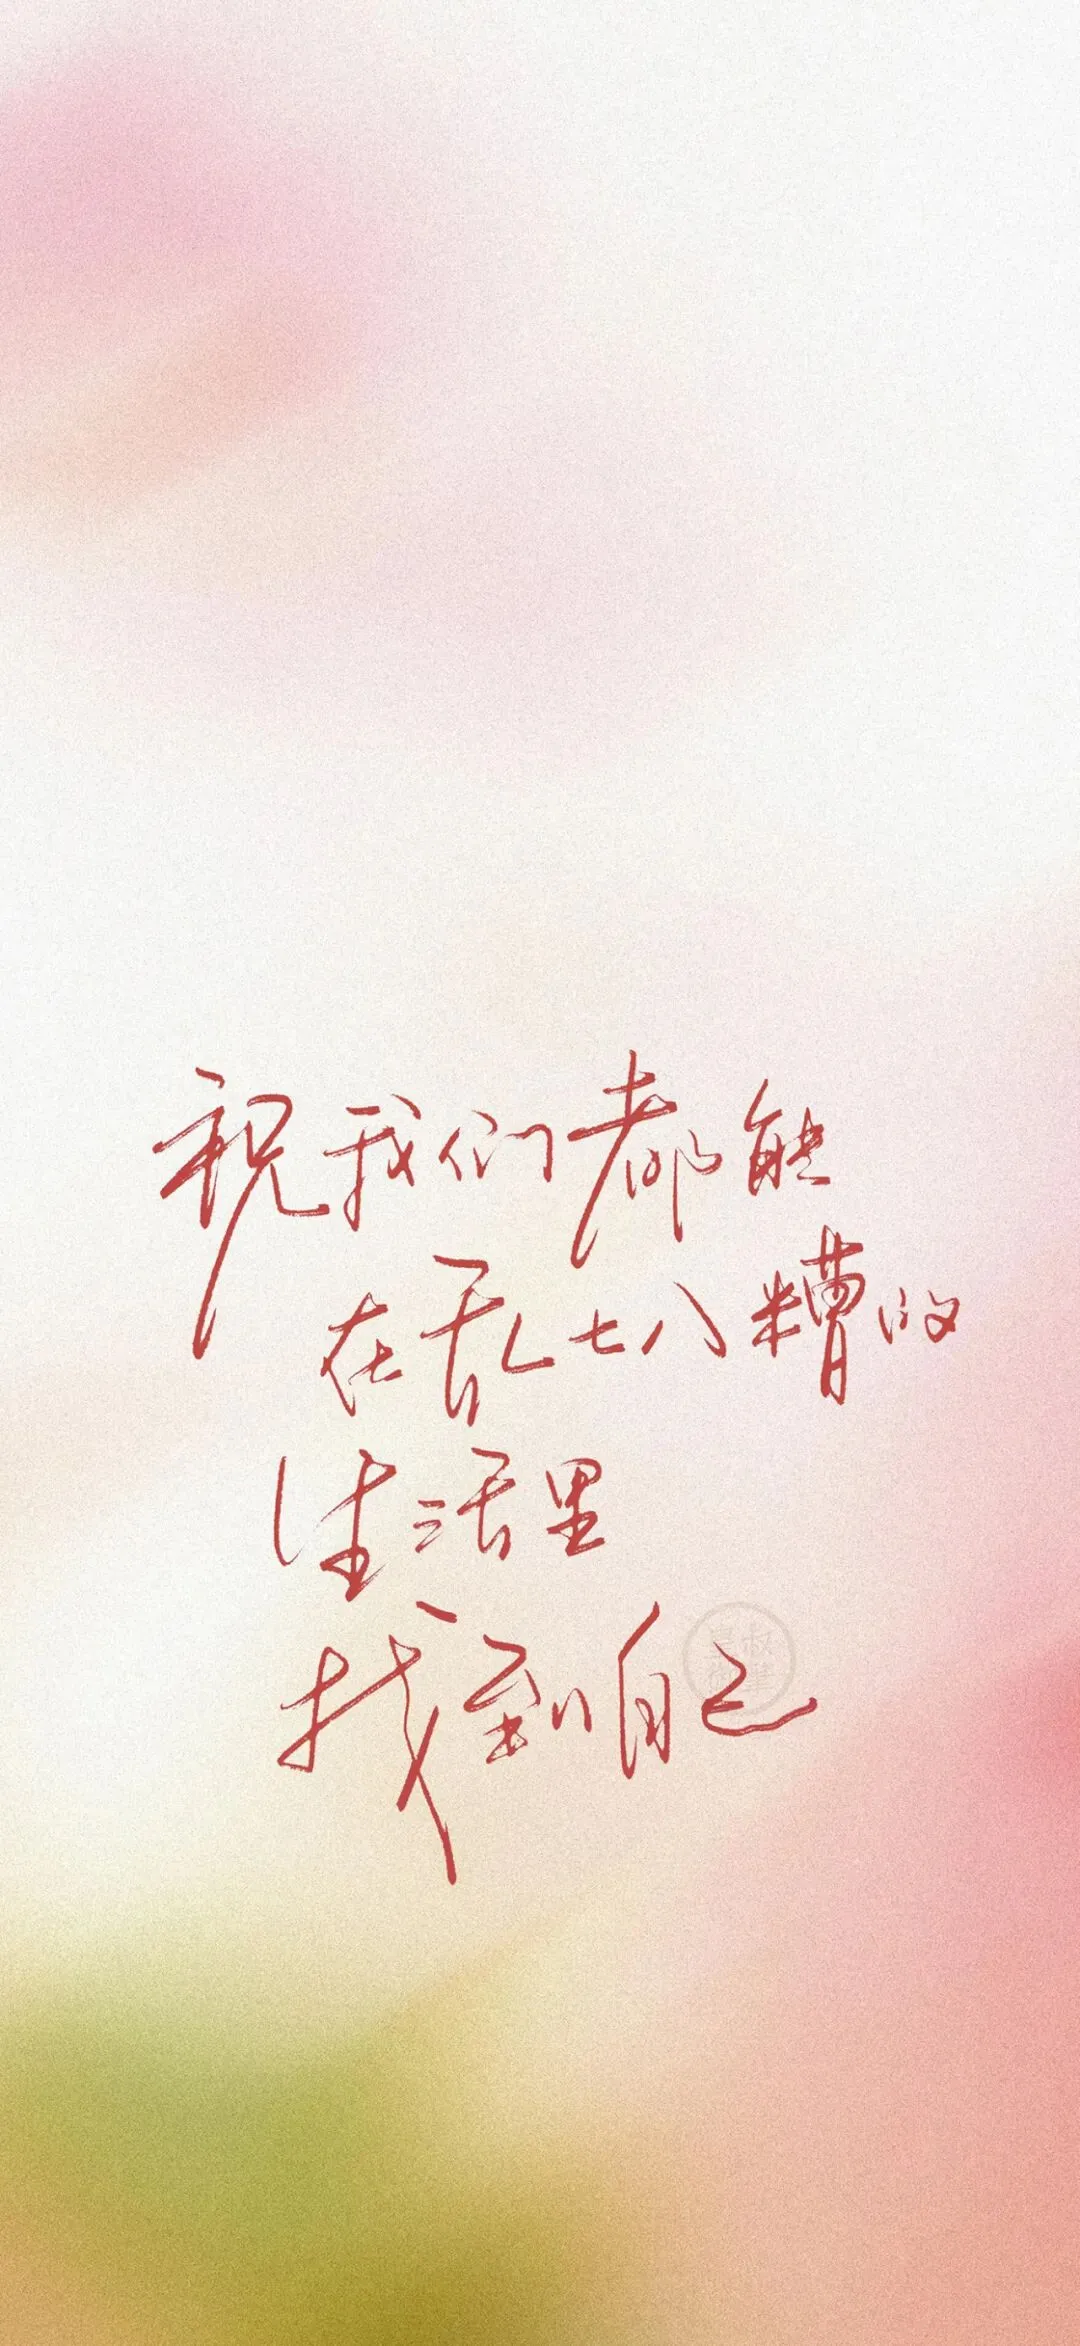 祝我们都能
在乱七八糟的
生活里
找到自己